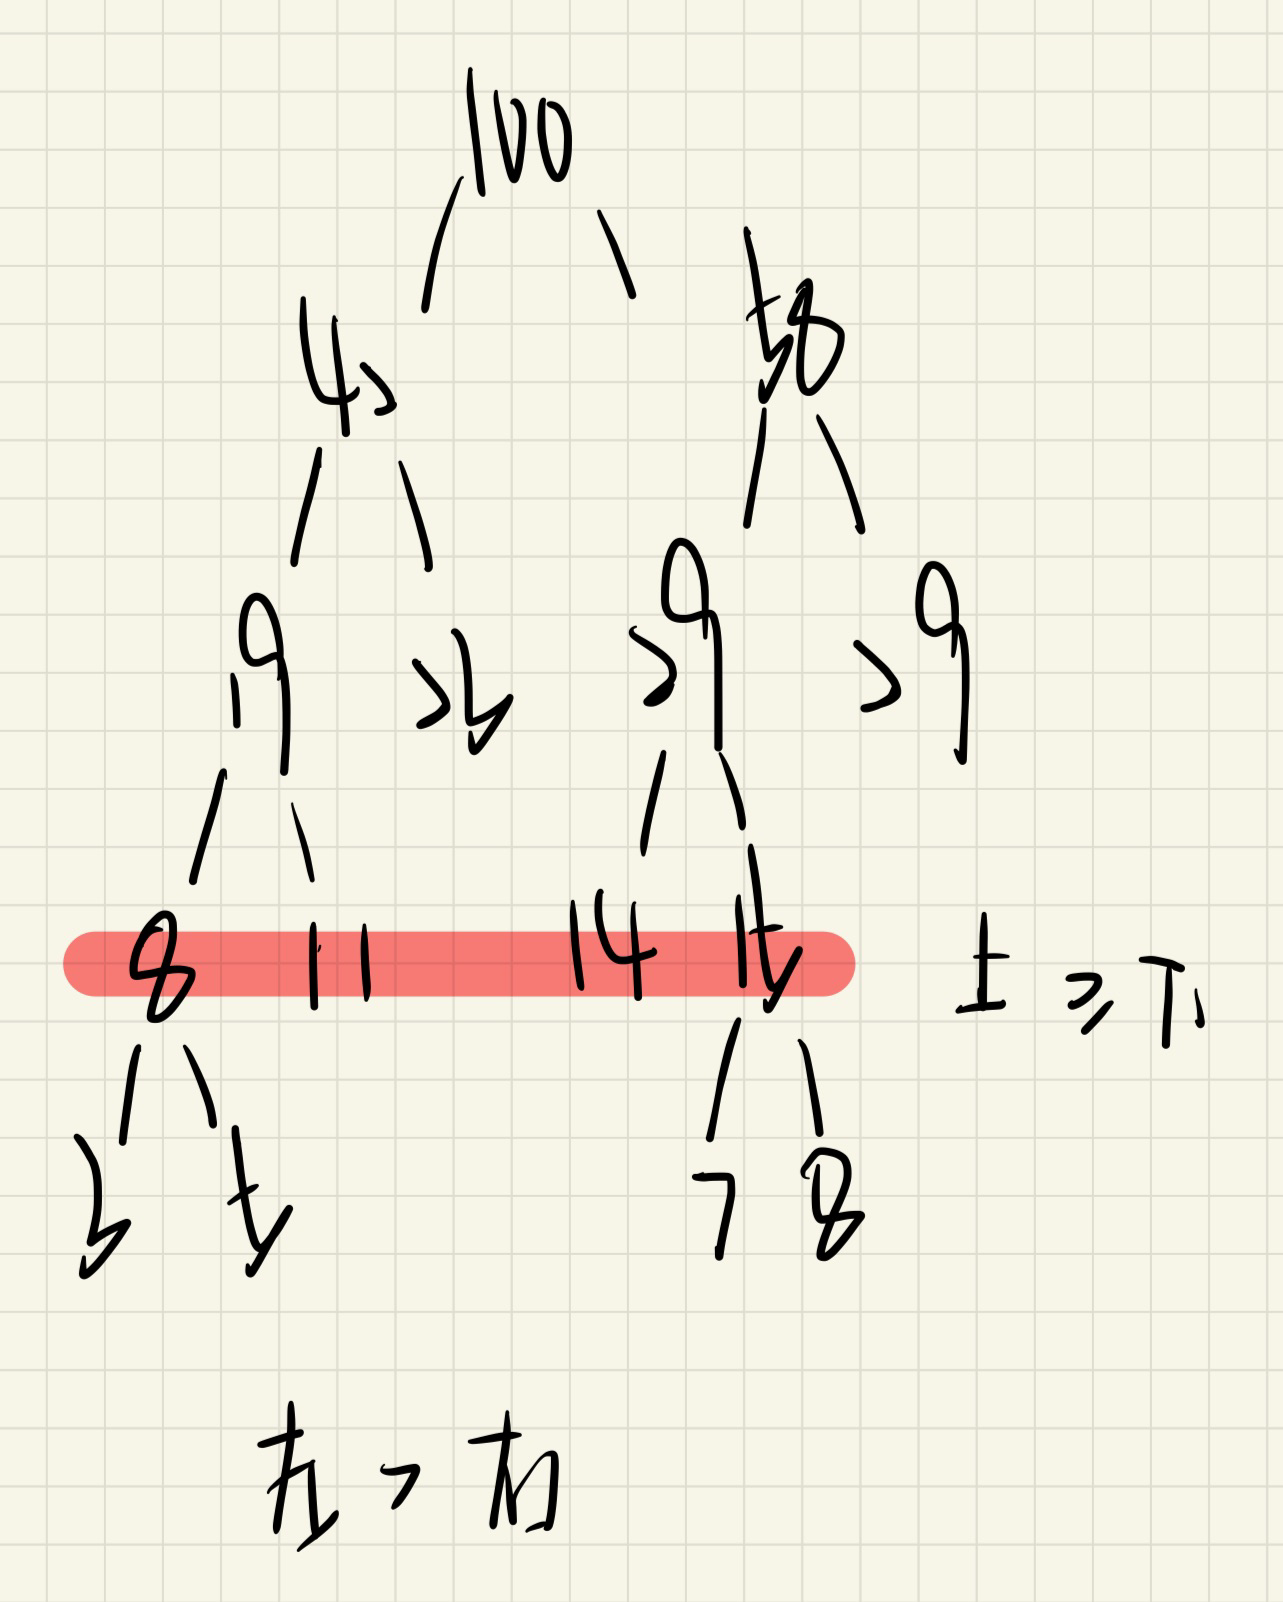 100
42 58
19 23 29 29
8 11 14 15 上 ≥ 下
3 5 7 8
左 > 右